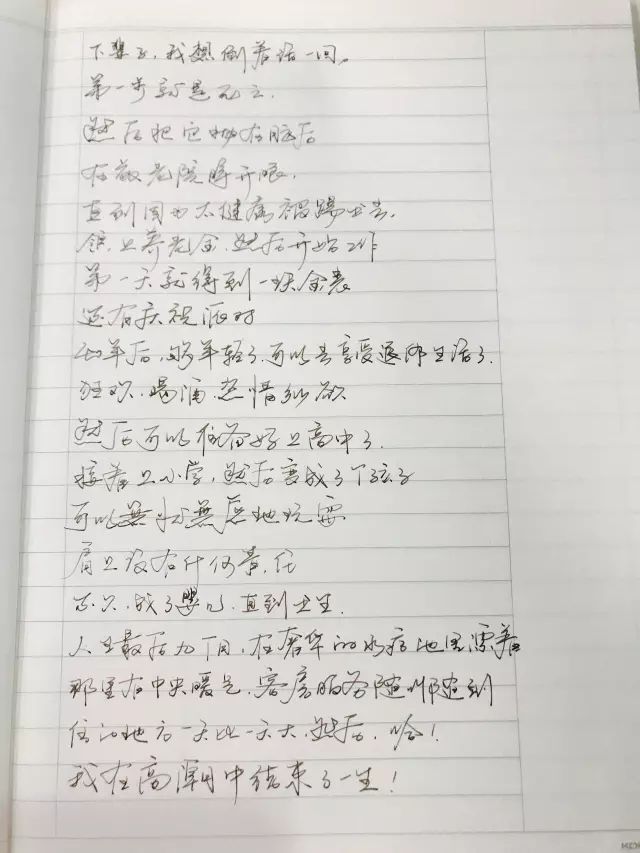 下辈子，我想倒着活一回。
第一步就是死亡.
然后把它抛在脑后
在敬老院睁开眼.
直到因为太健康被踢出去.
领上养老金.然后开始工作
第一天就得到一块金表
还有庆祝派对
40年后，够年轻了.可以去享受退休生活了.
狂欢.喝酒.恣情纵欲
然后可以准备好上高中了.
接着上小学，然后变成了个孩子
可以无忧无虑地玩耍
肩上没有什么责任
不久.成了婴儿.直到出生.
人生最后九个月，在奢华的水疗池里漂着
那里有中央暖气.客房服务随叫随到
住的地方一天比一天大.然后.哈！
我在高潮中结束了一生！